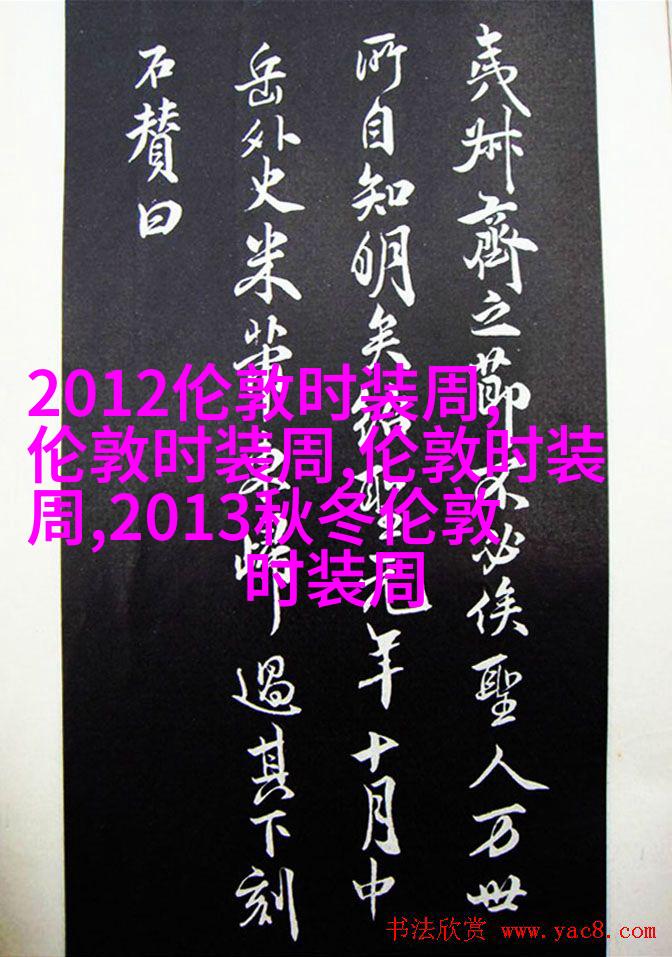 夷叔齊之節不必俟聖人万世
所自知明矣紹聖元年十月中
岳外史米芾歸過其下刻
石贊曰
2012伦敦时装周,
伦敦时装周,伦敦时装
周,2013秋冬伦敦
时装周
书法欣赏 www.yac8.com